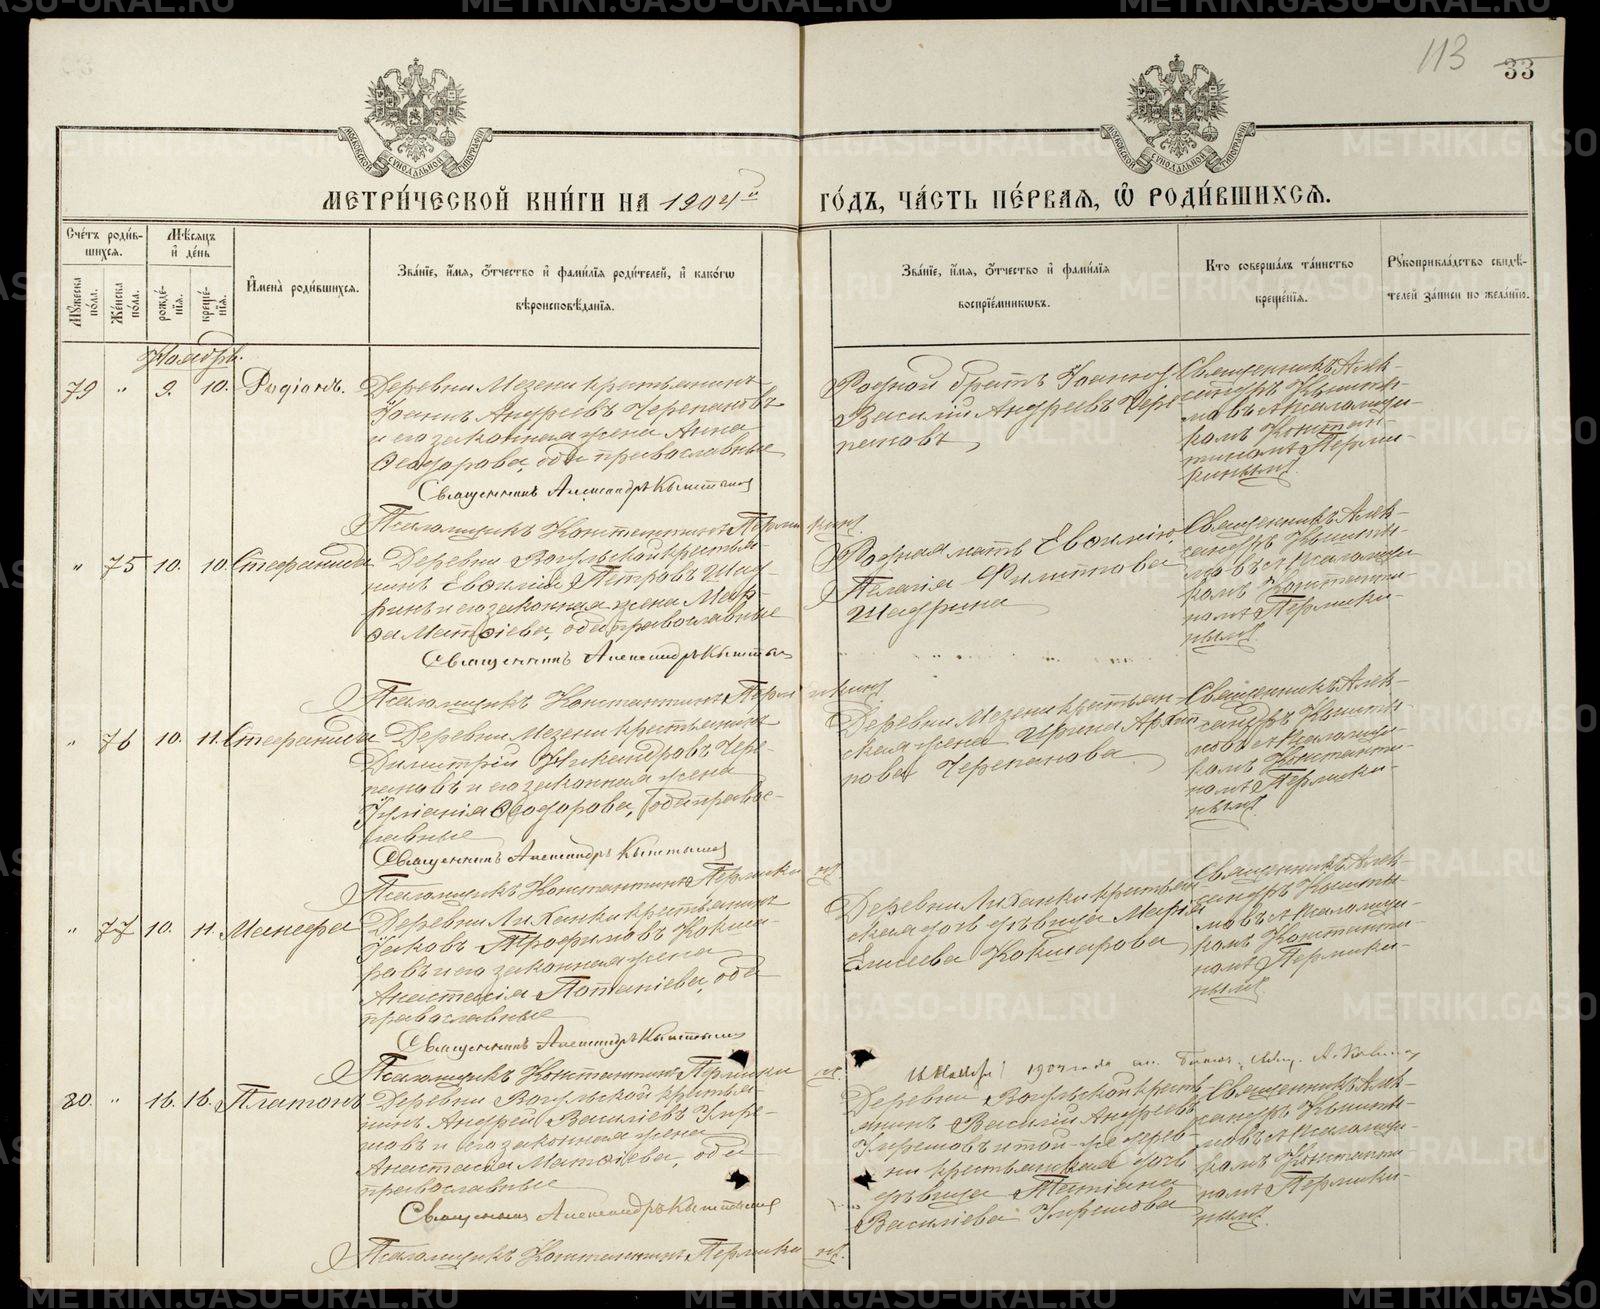 113
33
МОСКОВСКОЙ СѴНОДАЛЬНОЙ ТИПОГРАФІИ
МОСКОВСКОЙ СѴНОДАЛЬНОЙ ТИПОГРАФІИ
МЕТРИ́ЧЕСКОЙ КНИ́ГИ НА 1904й ГО́ДЪ, ЧА́СТЬ ПЕ́РВАЯ, Ѽ РОДИ́ВШИХСЯ.
Сче́тъ роди́в-
шихся.
Мꙋ́жеска по́ла.
Же́нска по́ла.
Мѣ́сяцъ
и҆ де́нь
рожде́-
нїя.
креще́-
нїя.
И҆мена̀ роди́вшихся.
Зва́нїе, и҆́мя, ѻ҆́тчество и҆ фами́лїя роди́телей, и҆ како́гѡ
вѣроисповѣ́данїя.
Зва́нїе, и҆́мя, ѻ҆́тчество и҆ фами́лїя
воспрїе́мниковъ.
Кто соверша́лъ та́инство
креще́нїя.
Рꙋкоприкла́дство свидѣ́-
телей за́писи по жела́нїю.
Ноябрь.
79 " 9. 10. Родіонъ.
Деревни Мезени крестьянинъ
Іоаннъ Андреевъ Черепановъ
и его законная жена Анна
Ѳеодорова, оба православные
Священникъ Александръ Кыштымовъ
Псаломщикъ Константинъ Пермикинъ
Родной братъ Іоанна
Василій Андреевъ Чере-
пановъ
Священникъ Алек-
сандръ Кышты-
мовъ съ псаломщи-
комъ Констан-
тиномъ Перми-
кинымъ
" 75 10. 10. Стефанида
Деревни Вогульской крестья-
нинъ Евѳимій Петровъ Шад-
ринъ и его законная жена Мар-
ѳа Матѳіева, оба православные
Священникъ Александръ Кыштымовъ
Псаломщикъ Константинъ Пермикинъ
Родная мать Евѳимія
Пелагія Филиппова
Шадрина
Священникъ Алек-
сандръ Кышты-
мовъ съ псаломщи-
комъ Константи-
номъ Пермики-
нымъ
" 76 10. 11. Стефанида
Деревни Мезени крестьянинъ
Димитрій Никандровъ Чере-
пановъ и его законная жена
Іуліанія Ѳеодорова, оба правос-
лавные
Священникъ Александръ Кыштымовъ
Псаломщикъ Константинъ Пермикинъ
Деревни Мезени крестьян-
ская жена Ирина
Черепанова
Священникъ Алек-
сандръ Кышты-
мовъ съ псаломщи-
комъ Константи-
номъ Пермики-
нымъ
" 77 10. 11. Манефа
Деревни Ляханки крестьянинъ
Іаковъ Трофимовъ Кокша-
ровъ и его законная жена
Анастасія Потапіева, оба
православные
Священникъ Александръ Кыштымовъ
Псаломщикъ Константинъ Пермикинъ
Деревни Ляханки крестьян-
ская дочь дѣвица Марія
Елисеева Кокшарова
Священникъ Алек-
сандръ Кышты-
мовъ съ псаломщи-
комъ Константи-
номъ Пермики-
нымъ
80. " 16. 16. Платонъ
Деревни Вогульской крестья-
нинъ Андрей Василіевъ Гире-
шовъ и его законная жена
Анастасія Матѳіева, оба
православные
Священникъ Александръ Кыштымовъ
Псаломщикъ Константинъ Пермикинъ
1904 года
Деревни Вогульской кресть-
янинъ Василій Андреевъ
и той же дерев-
ни крестьянская дочь
дѣвица Татіана
Василіева
Священникъ Алек-
сандръ Кышты-
мовъ съ псаломщи-
комъ Константи-
номъ Пермики-
нымъ
METRIKI.GASO-URAL.RU